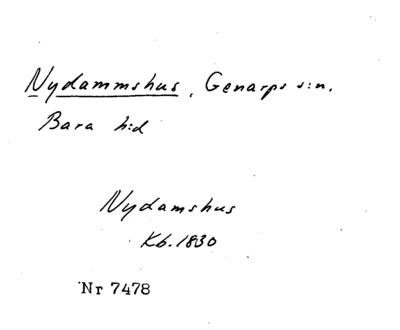 Nydammshus, Genarps s:n.
Bara h:d
Nydamshus
Kb. 1830
Nr 7478